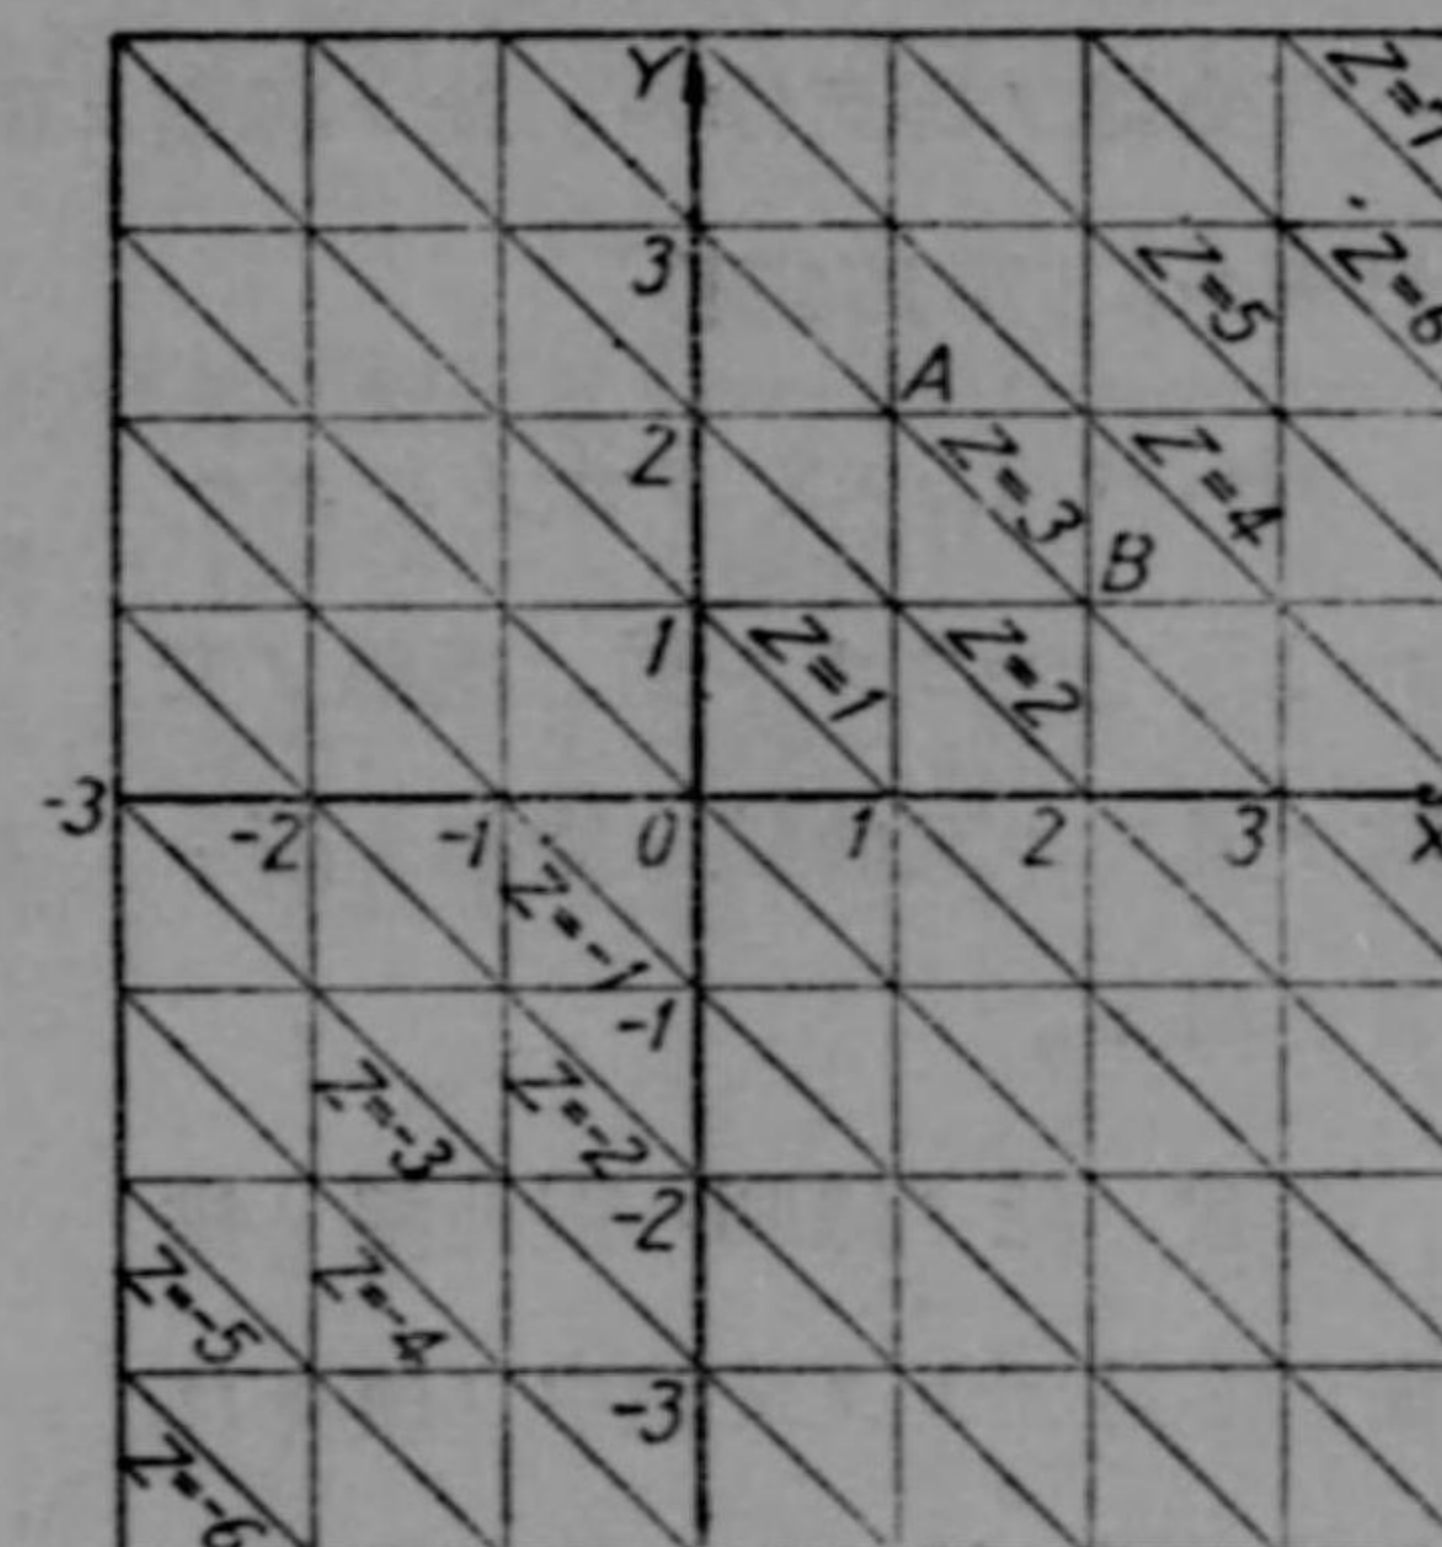 Y
Z=7
3
Z=5
Z=6
A
2
Z=3
Z=4
B
1
Z=1
Z=2
-3
-2
-1
0
1
2
3
X
Z=-1
-1
Z=-3
Z=-2
-2
Z=-5
Z=-4
-3
Z=-6